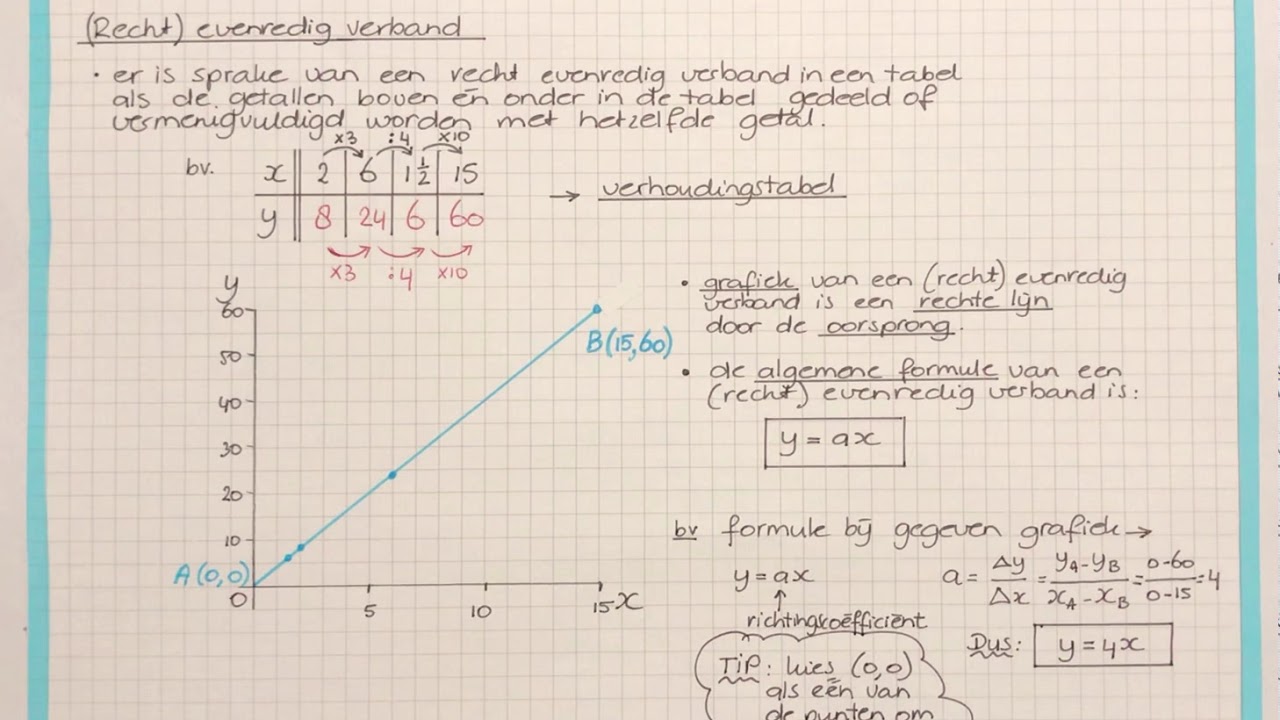 (Recht) evenredig verband
• er is sprake van een recht evenredig verband in een tabel
als de getallen boven én onder in de tabel gedeeld of
vermenigvuldigd worden met hetzelfde getal.
x3 :4 x10
bv. x 2 6 1½ 15
→ verhoudingstabel
y 8 24 6 60
x3 :4 x10
• grafiek van een (recht) evenredig
verband is een rechte lijn
door de oorsprong.
• de algemene formule van een
(recht) evenredig verband is:
y = ax
y
60
50
40
30
20
10
0
5 10 15 x
A(0,0)
B(15,60)
bv formule bij gegeven grafiek →
y = ax
↑
richtingscoëfficiënt
a = Δy/Δx = (yA - yB)/(xA - xB) = (0-60)/(0-15) = 4
Dus: y = 4x
TIP: kies (0,0)
als één van
de punten om